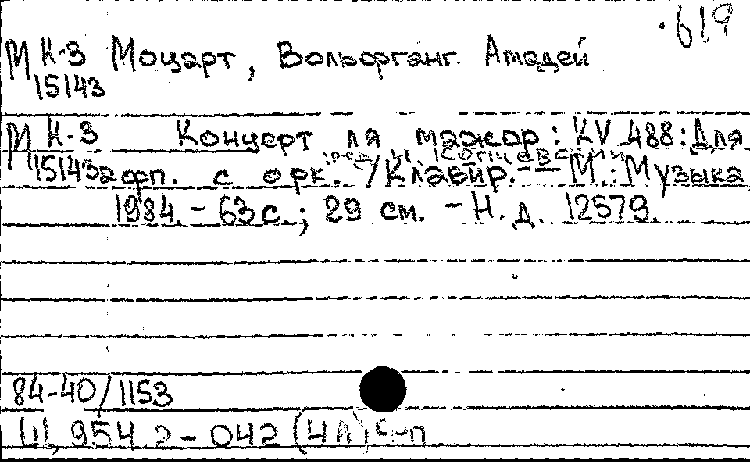 .619
М К-3 Моцарт, Вольфганг Амадей
15143
М К-3 Концерт ля мажор: KV 488: Для
15143 2 фп. с орк. /Клавир. — М.: Музыка
1984. – 63 с.; 29 см. – Н. д. 12579.
84-40/1153
954 2 – 042 (4А)